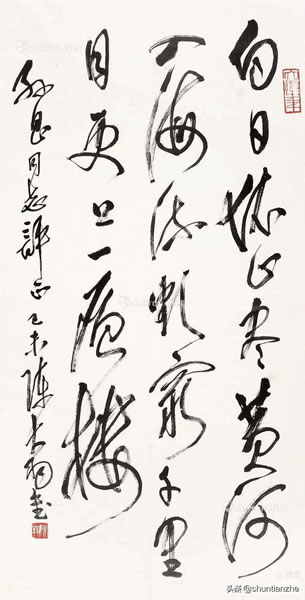 白日依山尽黄河
入海流欲窮千里
目更上一層樓
同志評正己未陳大羽書
头条 @shuntianzhe